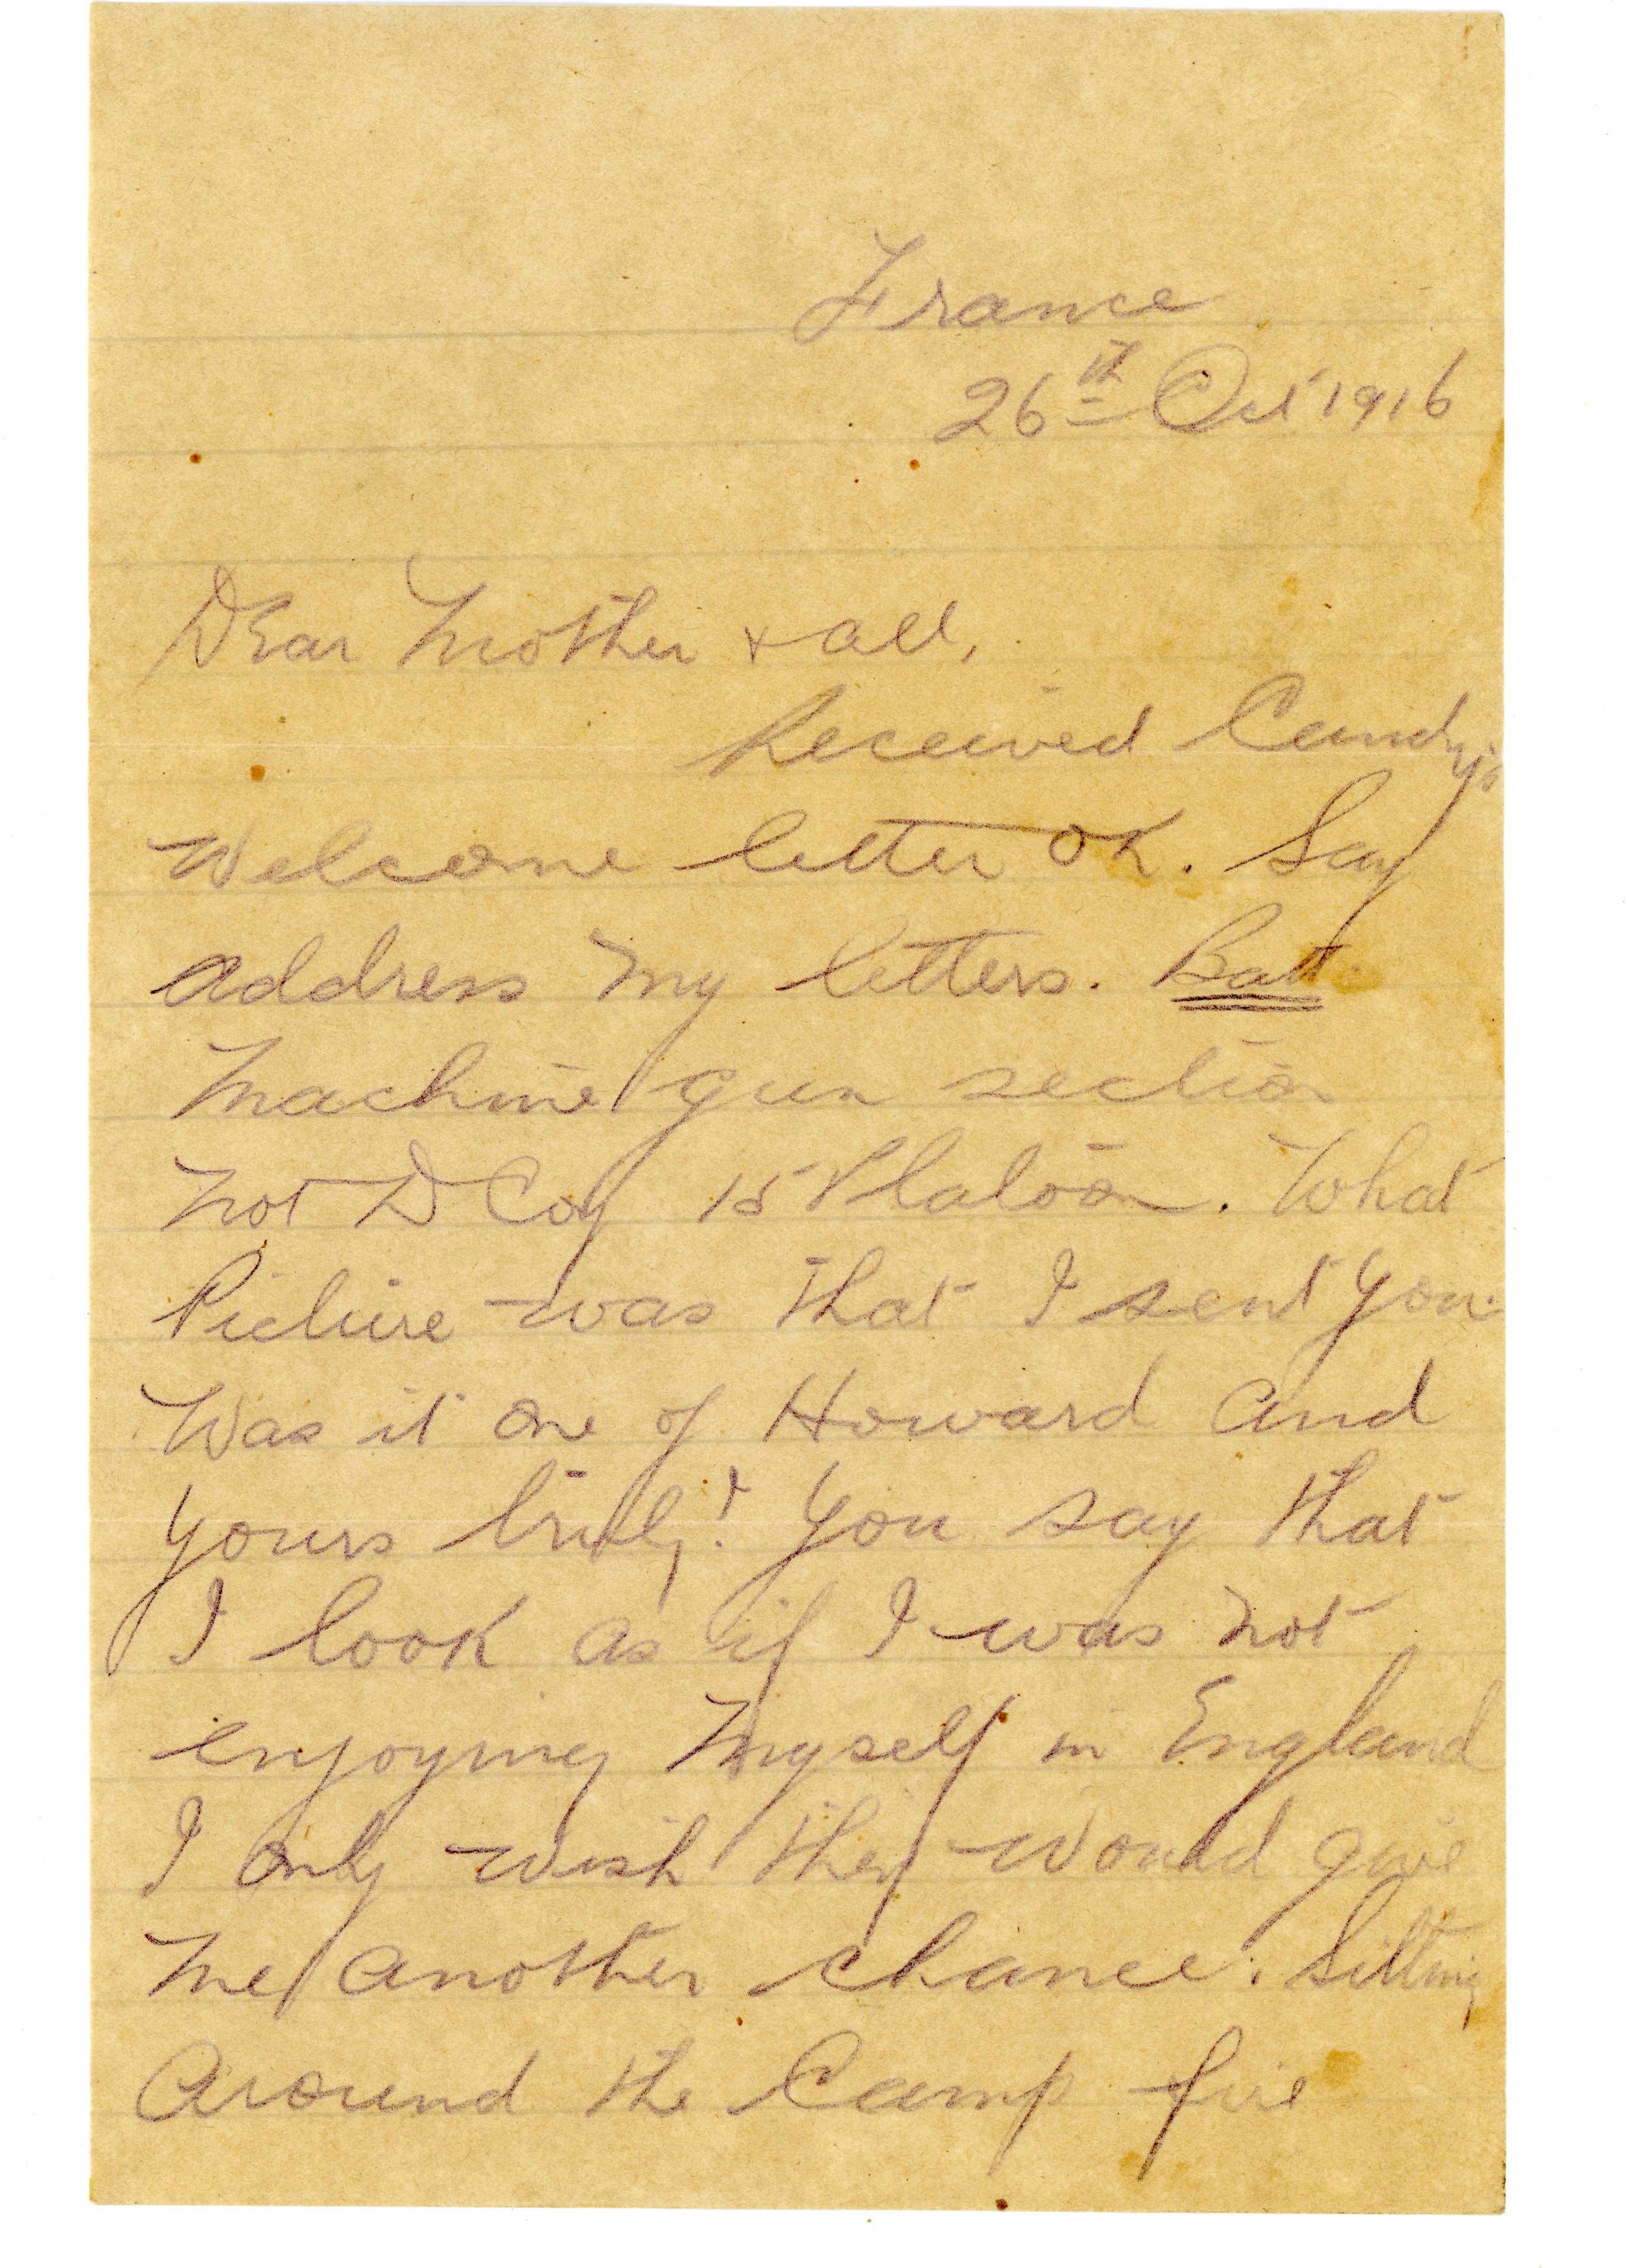 France
26th Oct 1916
Dear Mother + all,
Received Candy's
Welcome letter OK. Say
address my letters. Batt
Machine gun section
not D Coy 15 Platoon. What
Picture was that I sent you.
Was it one of Howard and
yours truly! You say that
I look as if I was not
enjoying myself in England
I only wish they would give
me another chance. Sitting
Around the Camp fire